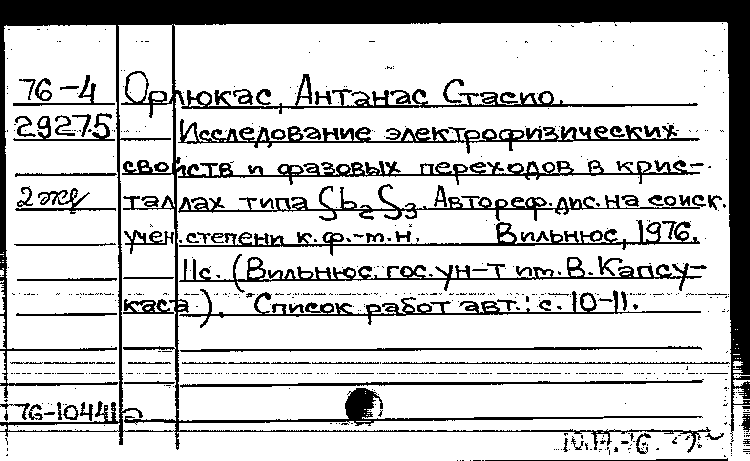 76-4 Орлюкас, Антанас Стасио.
29275 Исследование электрофизических
свойств и фазовых переходов в крис-
2 экз таллах типа Sb₂S₃. Автореф. дис. на соиск.
учен. степени к.ф.-т.н. Вильнюс, 1976.
11с. (Вильнюс. гос. ун-т им. В. Капсу-
каса). Список работ авт.: с. 10-11.
76-10441